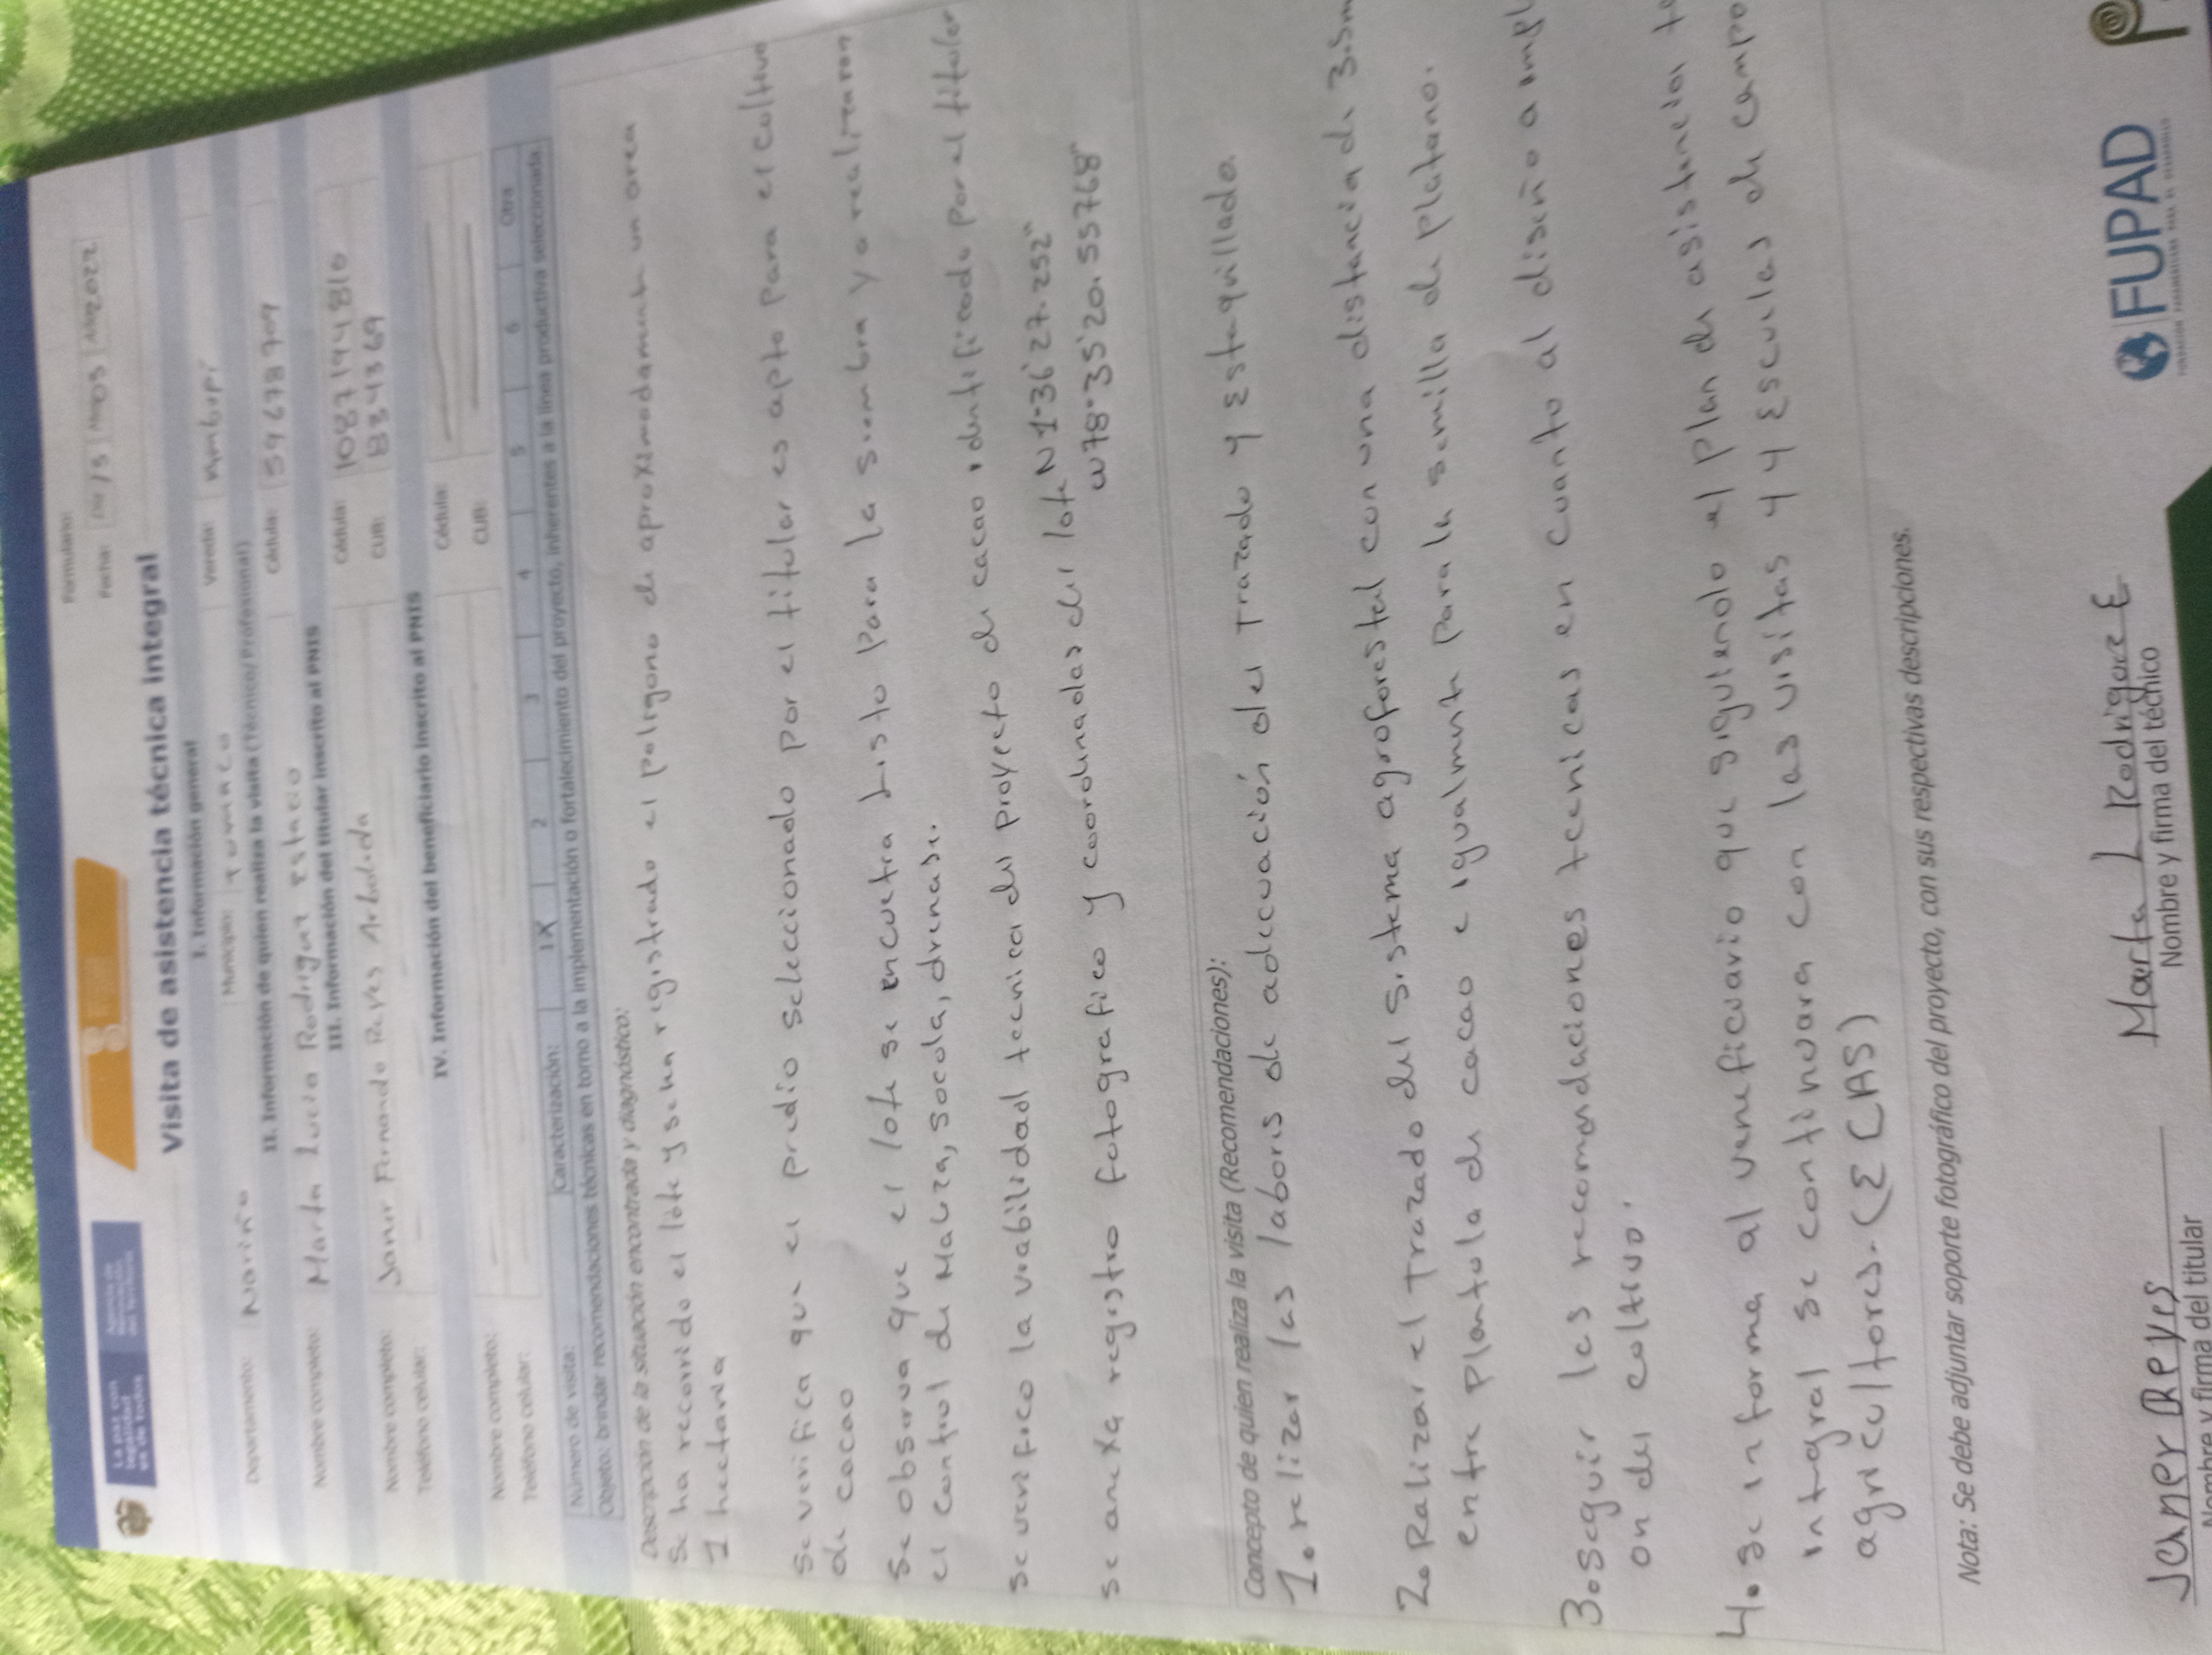 La paz con
legalidad
es de todos
Formulario:
Fecha: M05 A2022
Visita de asistencia técnica integral
I. Información general
Departamento: Nariño Municipio: Tumaco Vereda:
II. Información de quien realiza la visita (Técnico/ Profesional)
Nombre completo: Marta Lucia Rodriguez Estacio Cédula: 59678709
III. Información del titular inscrito al PNIS
Nombre completo: Janer Fernando Reyes Arboleda Cédula: 1087194816
Teléfono celular: CUB: 834369
IV. Información del beneficiario inscrito al PNIS
Nombre completo: Cédula:
Teléfono celular: CUB:
Número de visita: Caracterización: 1 X 2 3 4 5 6 Otra
Objeto: brindar recomendaciones técnicas en torno a la implementación o fortalecimiento del proyecto, inherentes a la línea productiva seleccionada.
Descripción de la situación encontrada y diagnóstico:
se ha recorrido el lote y se ha registrado el poligono de aproximadamente un area
1 hectaria
se verifica que el predio seleccionado por el titular es apto para el cultivo
de cacao
se observa que el lote se encuetra Listo para la siembra ya realizaron
el control de Maleza, socola, drenase.
se verifico la viabilidad tecnica del proyecto de cacao identificado por el titular
se anexa registro fotografico y coordenadas del lote N1°36'27.252"
W78°35'20.55768"
Concepto de quien realiza la visita (Recomendaciones):
1. relizar las labores de adecuación del Trazado y Estaquillado.
2. Realizar el Trazado del sistema agroforestal con una distancia de 3.5m
entre plantula de cacao e igualmente para la semilla de platano.
3. seguir las recomendaciones tecnicas en cuanto al diseño a
on del coltivo.
4. se informa al veneficuario que siguiendo el plan de asistencia
integral se continuara con las visitas y 4 Escuelas de campo
agricultores. (ECAS)
Nota: Se debe adjuntar soporte fotográfico del proyecto, con sus respectivas descripciones.
Janer Reyes Marta L Rodriguez E
Nombre y firma del titular Nombre y firma del técnico
FUPAD